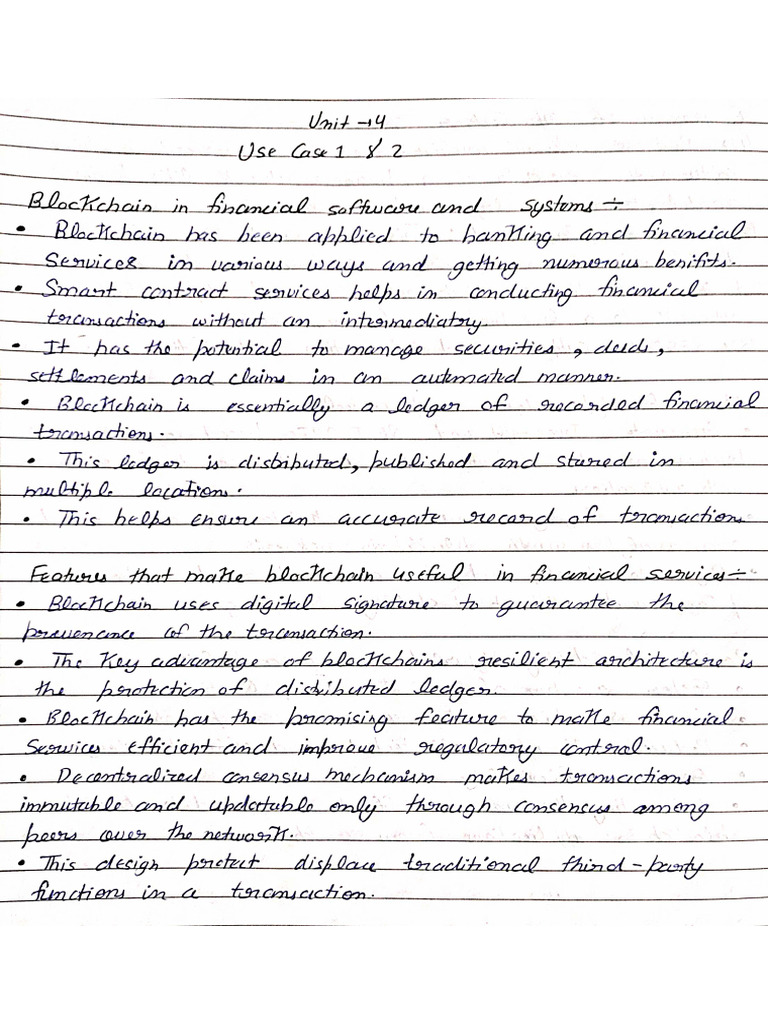 Unit → 4
Use Case 1 & 2
Blockchain in financial software and systems ÷
• Blockchain has been applied to banking and financial
Services in various ways and getting numerous benifits.
• Smart contract services helps in conducting financial
transactions without an intermediatory.
• It has the potential to manage securities, deeds,
settlements and claims in an automated manner.
• Blockchain is essentially a ledger of recorded financial
transactions.
• This ledger is distributed, published and stured in
multiple locations.
• This helps ensure an accurate record of transactions
Features that make blockchain useful in financial services ÷
• Blockchain uses digital signature to guarantee the
provenance of the transaction.
• The Key advantage of blockchains resilient architecture is
the protection of distributed ledger.
• Blockchain has the promising feature to make financial
Services efficient and improve regulatory control.
• Decentralized consensus mechanism makes transactions
immutable and updatable only through consensus among
peers over the network.
• This design protect displace traditional third-party
functions in a transaction.